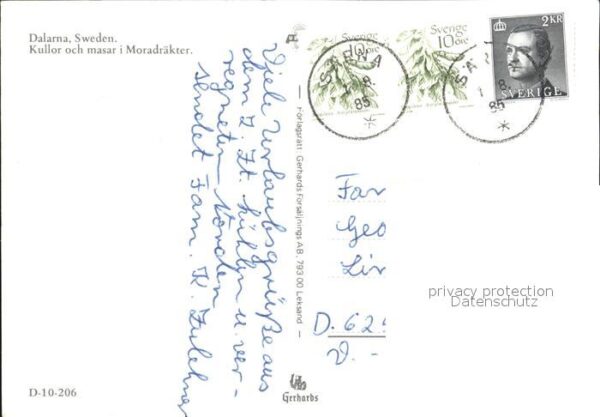 Dalarna, Sweden.
Kullor och masar i Moradräkter.
Viele Urlaubsgrüße aus
dem z. Zt. kühlen u. ver-
regneten Norden
sendet Fam. K.
Förlagsrätt: Gerhards Försäljnings AB, 793 00 Leksand
Sverige
10 öre
Sverige
10 öre
2 KR
SVERIGE
SÄRNA
8
85
8
85
Far
Geo
Lir
D. 62
privacy protection
Datenschutz
D-10-206
Gerhards